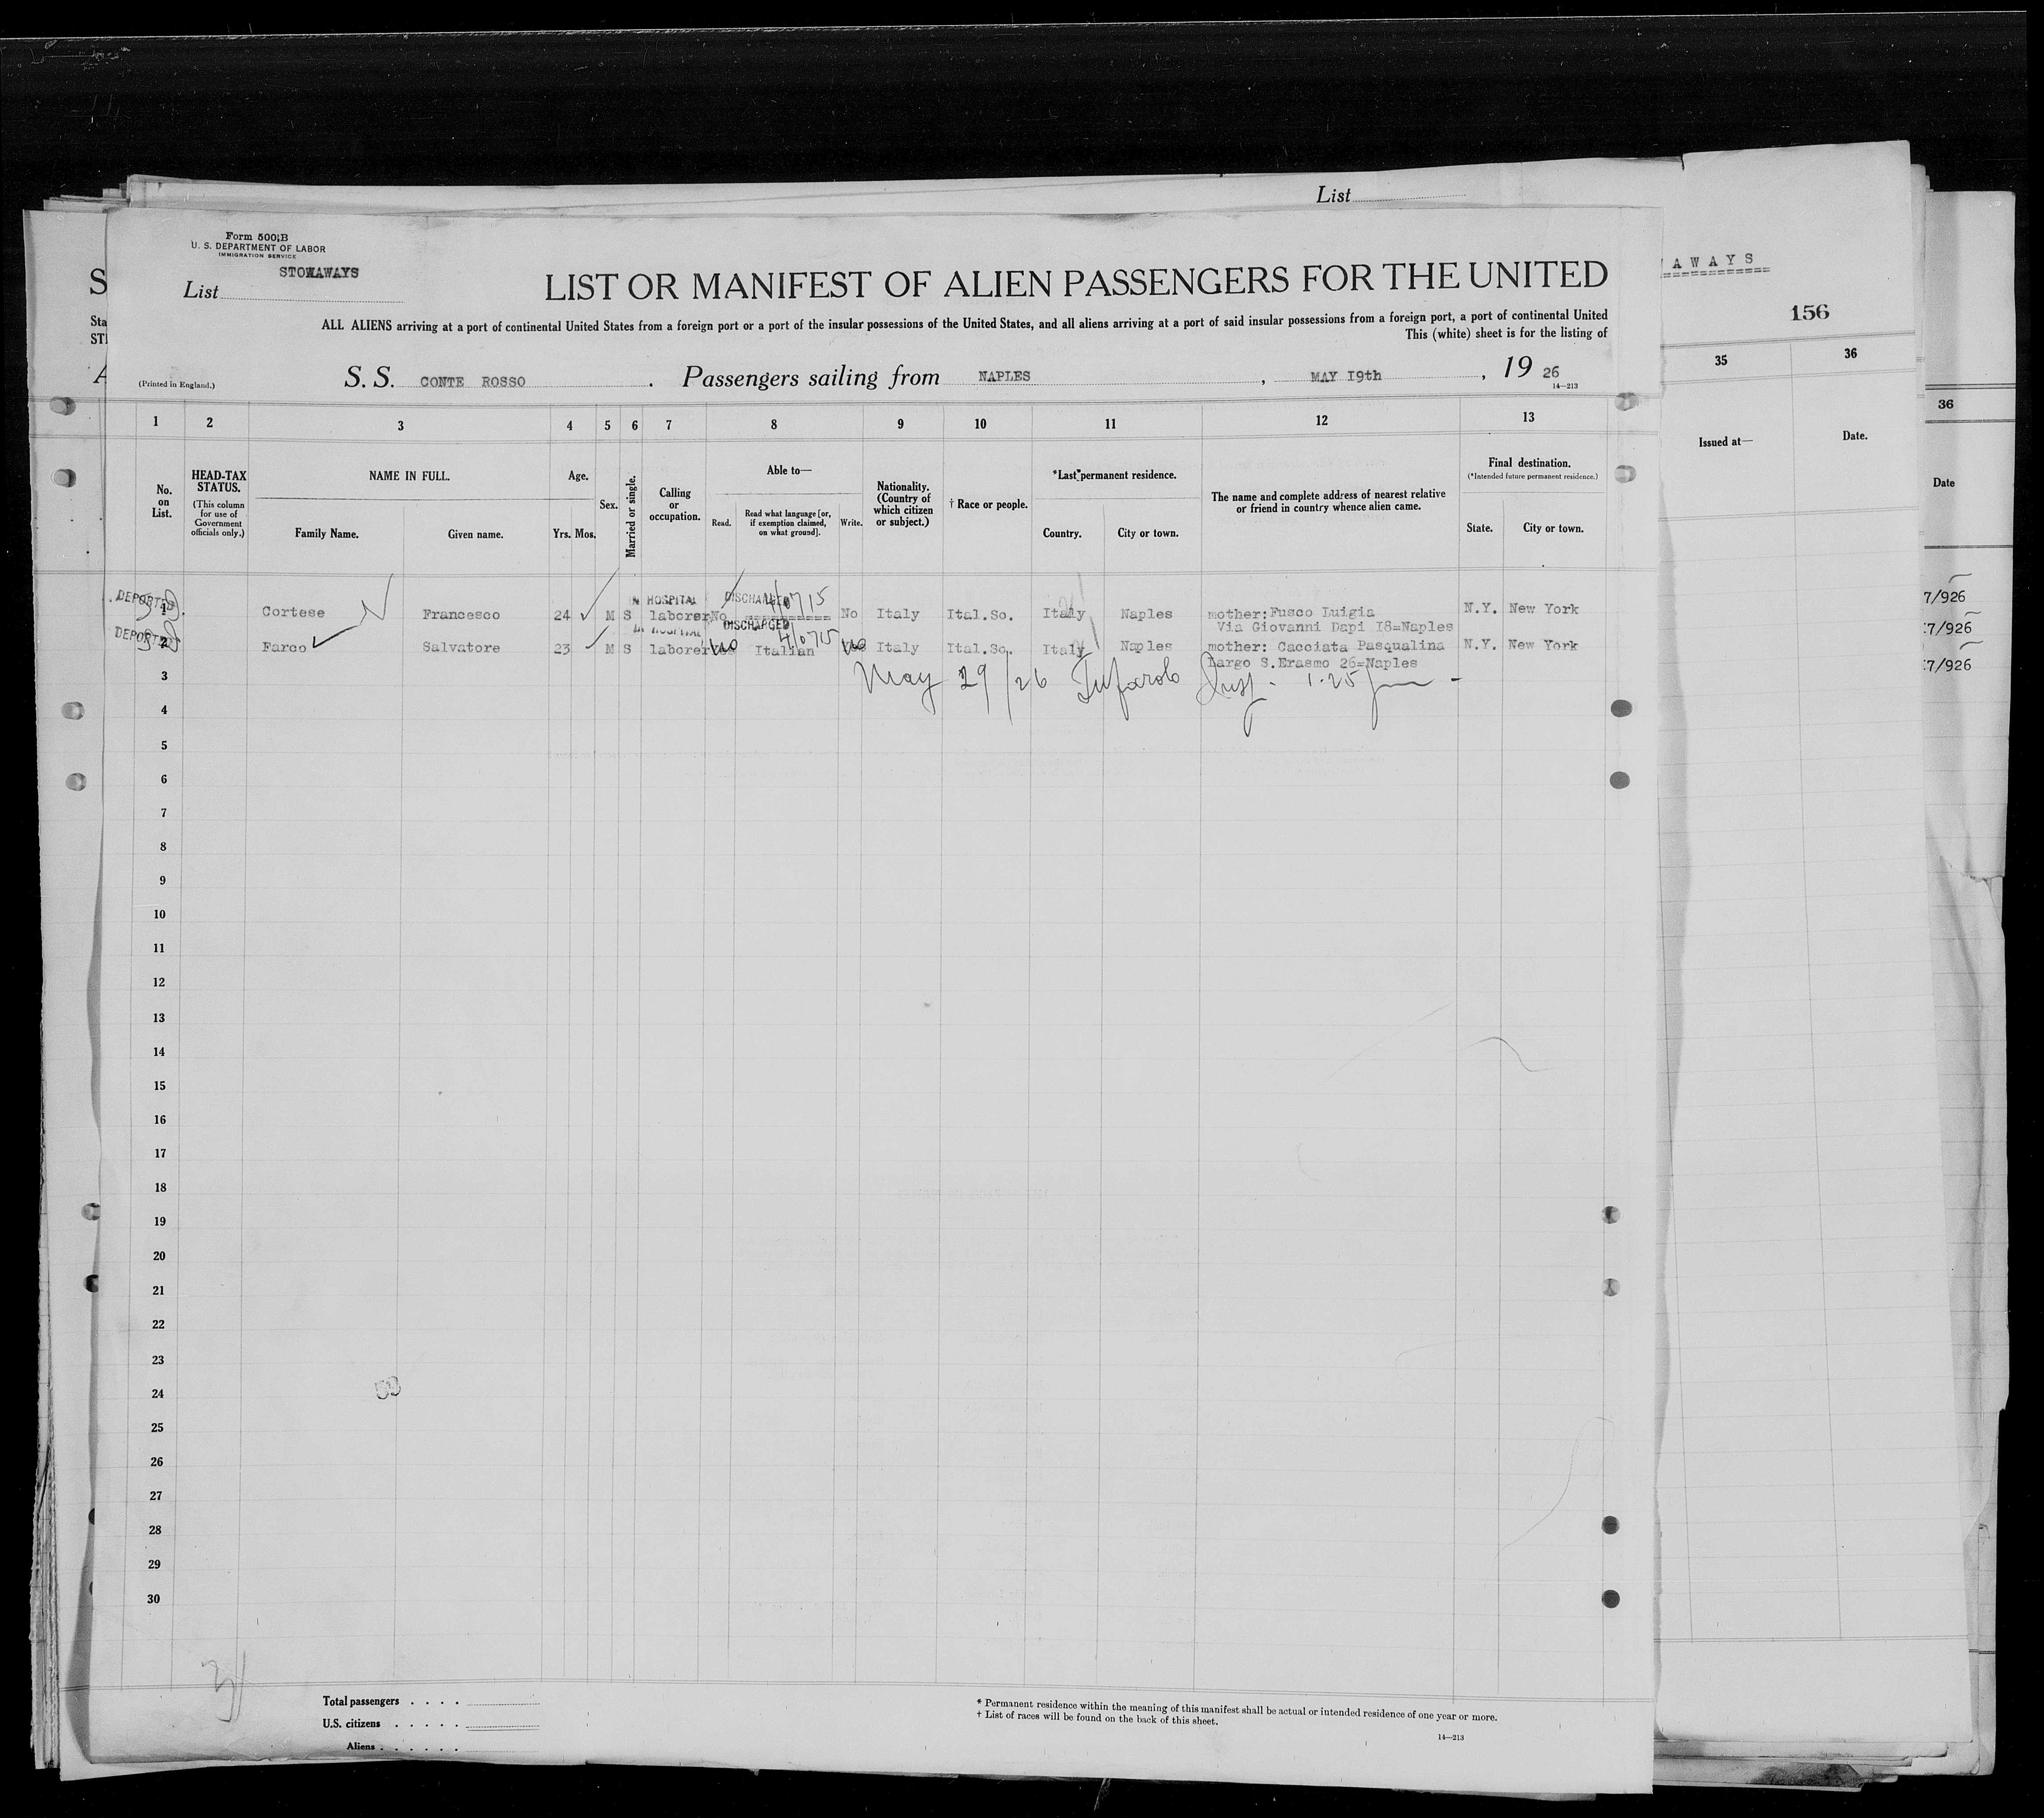 List
Form 500 B
U. S. DEPARTMENT OF LABOR
IMMIGRATION SERVICE
STOWAWAYS
List
LIST OR MANIFEST OF ALIEN PASSENGERS FOR THE UNITED
ALL ALIENS arriving at a port of continental United States from a foreign port or a port of the insular possessions of the United States, and all aliens arriving at a port of said insular possessions from a foreign port, a port of continental United
This (white) sheet is for the listing of
(Printed in England.)
S. S. CONTE ROSSO . Passengers sailing from NAPLES , MAY I9th , 19 26
14—213
1 2 3 4 5 6 7 8 9 10 11 12 13
No. on List.
HEAD-TAX STATUS.
(This column for use of Government officials only.)
NAME IN FULL.
Family Name. Given name.
Age.
Yrs. Mos.
Sex.
Married or single.
Calling or occupation.
Able to—
Read. Read what language [or, if exemption claimed, on what ground]. Write.
Nationality. (Country of which citizen or subject.)
† Race or people.
*Last permanent residence.
Country. City or town.
The name and complete address of nearest relative or friend in country whence alien came.
Final destination.
(*Intended future permanent residence.)
State. City or town.
DEPORTED IN HOSPITAL DISCHARGED 4/0715
1 Cortese Francesco 24 M S laborer No ========== No Italy Ital.So. Italy Naples mother:Fusco Luigia N.Y. New York
Via Giovanni Dapi I8=Naples
DEPORTED IN HOSPITAL DISCHARGED 4/0715
2 Farco Salvatore 23 M S laborer No Italian No Italy Ital.So. Italy Naples mother: Cacciata Pasqualina N.Y. New York
Largo S.Erasmo 26=Naples
3 May 29/26 Tufarolo Insp. 1.25 pm
4
5
6
7
8
9
10
11
12
13
14
15
16
17
18
19
20
21
22
23
24
25
26
27
28
29
30
Total passengers . . . .
U.S. citizens . . . . .
Aliens . . . . . .
* Permanent residence within the meaning of this manifest shall be actual or intended residence of one year or more.
† List of races will be found on the back of this sheet.
14—213
AWAYS
156
35 36
Issued at— Date.
36
Date
7/926
7/926
7/926